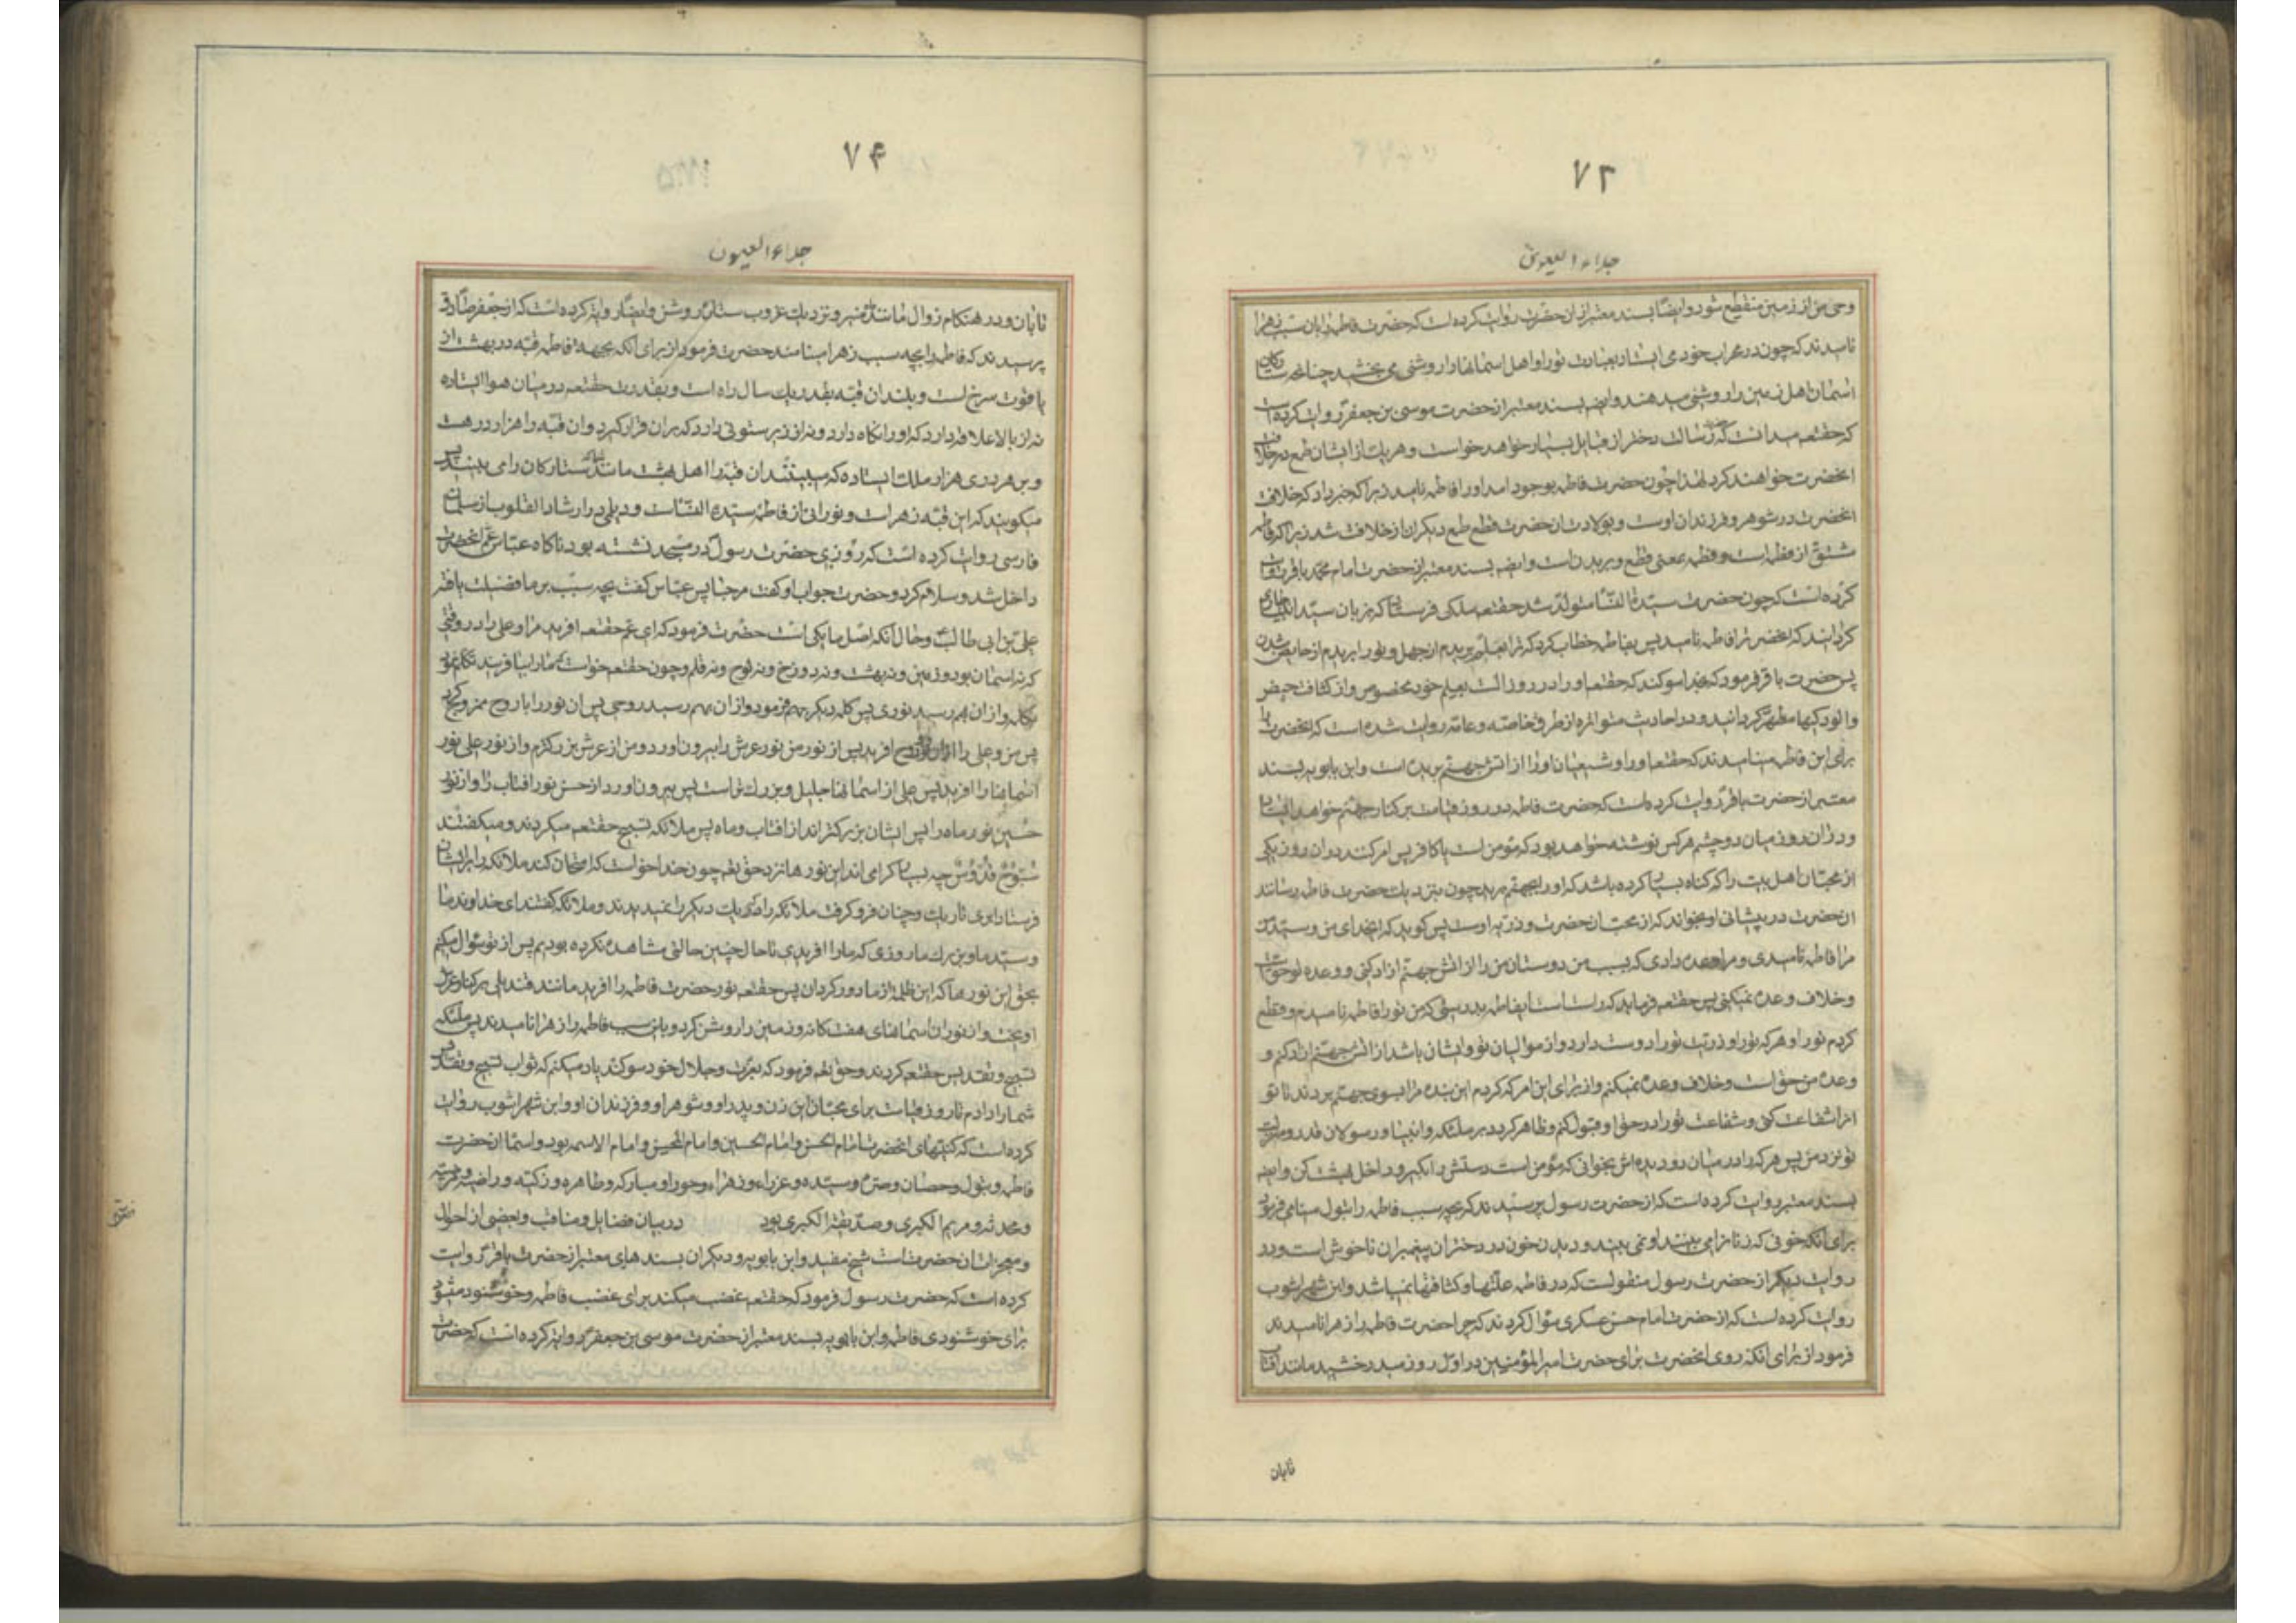 ۷۳
جلاء العیون
وحی من از زمین منقطع شود وایضا بسند معتبر از ان حضرت روایت کرده است که حضرت فاطمه را بان سبب زهرا
نامیدند که چون در محراب خود می ایستاد بعبادت نور او اهل اسمانها را روشنی می بخشید چنانچه ستارکان
اسمان اهل زمین را روشنی میدهند وایضه بسند معتبر از حضرت موسی بن جعفر روایت کرده است
که حقتعه میدانست که رسالت دختر از قبایل بسیار خواهد خواست و هریک از ایشان طمع در خلافت
انحضرت خواهند کرد لهذا چون حضرت فاطمه بوجود امد او را فاطمه نامید زیرا که خبر داد که خلافت
انحضرت در شوهر و فرزندان اوست و بولادت ان حضرت قطع طمع دیکران از خلافت شد زیرا که فاطمه
مشتق از فطم است و فطم بمعنی قطع و بریدن است وایضه بسند معتبر از حضرت امام محمد باقر روایت
کرده است که چون حضرت سیدة النسا متولد شد حقتعه ملکی فرستاد که بزبان سید انبیا جاری
کرداند که انحضرت را فاطمه نامید پس بفاطمه خطاب کرد که ترا بعلم بریدم از جهل و تو را بریدم از حایض شدن
پس حضرت باقر فرمود که بخدا سوکند که حقتعه او را در روز الست بعلم خود مخصوص و از کثافت حیض
والودکیها مطهر کردانید و در احادیث متواتره از طرق خاصه و عامه روایت شده است که انحضرت را
برای این فاطمه مینامیدند که حقتعه او را و شیعیان او را از اتش جهنم بریده است وابن بابویه بسند
معتبر از حضرت باقر روایت کرده است که حضرت فاطمه در روز قیامت بر کنار جهنم خواهد ایستاد
و در ان روز میان دو چشم هرکس نوشته خواهد بود که مؤمن است یا کافر پس امر کنند در ان روز یکی
از محبان اهل بیت را که کناه بسیار کرده باشد که او را بجهنم برید چون بنزدیک حضرت فاطمه رسانند
ان حضرت در پیشانی او بخواند که از محبان حضرت و ذریه اوست پس کوید که ایخدای من و سید من
مرا فاطمه نامیدی و مرا وعده دادی که بسبب من دوستان من را از اتش جهنم ازاد کنی و وعده تو حق است
و خلاف وعده نمیکنی پس حقتعه فرماید که راست است ایفاطمه بدرستی که من تو را فاطمه نامیدم و قطع
کردم تو را و هرکه تو را و ذریت تو را دوست دارد و از موالیان تو و ایشان باشد از اتش جهنم ازاد کنم و
وعده من حق است و خلاف وعده نمیکنم و از برای این امر کردم این بنده مرا بسوی جهنم بردند تا تو
انرا شفاعت کنی و شفاعت تو را در حق او قبول کنم و ظاهر کردد بر ملئکه و انبیا و رسولان قدر و منزلت
تو نزد من پس هرکه را در میان دو دیده اش بخوانی که مؤمن است دستش را بکیر و داخل بهشت کن وایضه
بسند معتبر روایت کرده است که از حضرت رسول پرسیدند که بچه سبب فاطمه را بتول مینامی فرمود
برای انکه خونی که زنانرا می بینند او نمی بیند و دیدن خون در دختران پیغمبران ناخوش است و در
روایت دیکر از حضرت رسول منقولست که در فاطمه علتها و کثافتها نمیباشد وابن شهراشوب
روایت کرده است که از حضرت امام حسن عسکری سؤال کردند که چرا حضرت فاطمه را زهرا نامیدند
فرمود از برای انکه روی انحضرت برای حضرت امیرالمؤمنین در اول روز میدرخشید مانند افتاب
تابان
۷۴
جلاء العیون
تابان و در هنکام زوال مانند ماه منیر و نزدیک غروب ستاره روشن وایضا روایت کرده است که از جعفر صادق
پرسیدند که فاطمه را بچه سبب زهرا مینامند حضرت فرمود از برای انکه بجهة فاطمه قبه در بهشت از
یاقوت سرخ است و بلندی ان قبه بقدر یک سال راه است و بقدرت حقتعه در میان هوا ایستاده
نه از بالا علاقه دارد که او را نکاه دارد و نه از زیر ستونی دارد که بر ان قرار کیرد و ان قبه را هزار در هست
و بر هر دری هزار ملک ایستاده که میبینند ان قبه را اهل بهشت مانند ستارکان را می بینند پس
میکویند که این قبه زهراست و نورانی از فاطمه سیدة النساست و دیلمی در ارشاد القلوب از سلمان
فارسی روایت کرده است که روزی حضرت رسول در مسجد نشسته بود ناکاه عباس عم انحضرت
داخل شد و سلام کرد و حضرت جواب او کفت مرحبا پس عباس کفت بچه سبب بر ما فضیلت یافته
علی بن ابی طالب و حال انکه اصل ما یکی است حضرت فرمود که ای عم حقتعه افرید مرا و علی را در وقتی
که نه اسمان بود و زمین و نه بهشت و نه دوزخ و نه لوح و نه قلم و چون حقتعه خواست که ما را بیافریند تکلم نمود
بکلمه و از ان بهم رسید نوری پس کلمه دیکر بهم فرمود و از ان بهم رسید روحی پس ان نور را با روح ممزوج کرد
پس من و علی را از ان نور و روح افرید پس از نور من نور عرش را بیرون اورد و من از عرش بزرکترم و از نور علی نور
اسمانها را افرید پس علی از اسمانها جلیل و بزرک تر است پس بیرون اورد از حسن نور افتاب را و از نور
حسین نور ماه را پس ایشان بزرکتراند از افتاب و ماه پس ملائکه تسبیح حقتعه میکردند و میکفتند
سُبّوحٌ قُدُّوسٌ چه بسیار کرامی اند این نورها نزد حق تعه چون خدا خواست که امتحان کند ملائکه را بر ایشان
فرستاد ابری تاریک و چنان فرو کرفت ملائکه را که یک دیکر را نمیدیدند و ملائکه کفتند ای خداوند ما
و سید ما و بزرک ما روزی که ما را افریدی تا حال چنین حالتی مشاهده نکرده بودیم پس از تو سؤال میکنیم
بحق این نورها که این ظلمة از ما دور کردان پس حقتعه نور حضرت فاطمه را افرید مانند قندیلی بر کنار عرش
اویخت و از نور ان اسمانهای هفت کانه و زمین را روشن کرد و باین سبب فاطمه را زهرا نامیدند پس ملئکه
تسبیح و تقدیس حقتعه کردند و حق تعه فرمود که بعزت و جلال خود سوکند یاد میکنم که ثواب تسبیح و تقدیس
شما را دادم تا روز قیامت برای محبان این زن و پدر او و شوهر او و فرزندان او وابن شهراشوب روایت
کرده است که کنیتهای انحضرت ام الحسن و ام الحسین و ام المحسن و ام الائمه بود و اسماء انحضرت
فاطمه و بتول و حصان و حره و سیده و عذراء و زهراء و حورا و مبارکه و طاهره و زکیه و راضیه و مرضیه
و محدثه و مریم الکبری و صدیقة الکبری بود در بیان فضایل و مناقب و بعضی از احوال
و معجزات ان حضرت است شیخ مفید وابن بابویه و دیکران بسندهای معتبر از حضرت باقر روایت
کرده است که حضرت رسول فرمود که حقتعه غضب میکند برای غضب فاطمه و خوشنود میشود
برای خوشنودی فاطمه وابن بابویه بسند معتبر از حضرت موسی بن جعفر روایت کرده است که حضرت